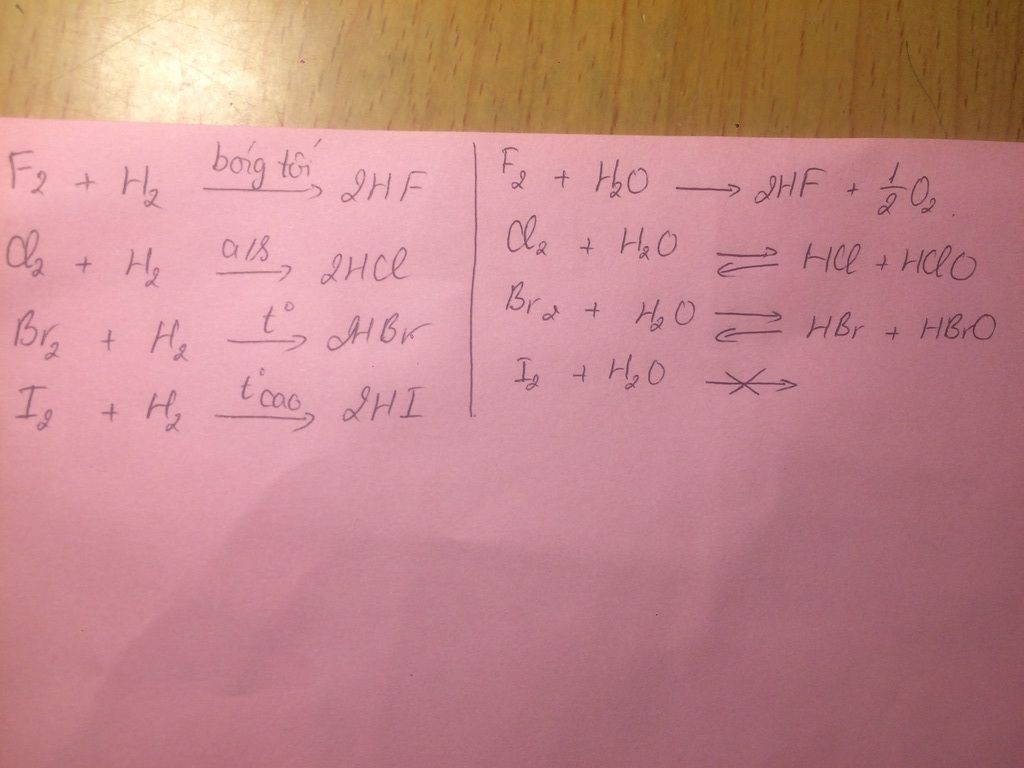 F₂ + H₂ bóng tối → 2HF
Cl₂ + H₂ a/s → 2HCl
Br₂ + H₂ t° → 2HBr
I₂ + H₂ t°cao → 2HI
F₂ + H₂O → 2HF + 1/2 O₂.
Cl₂ + H₂O ⇌ HCl + HClO
Br₂ + H₂O ⇌ HBr + HBrO
I₂ + H₂O ↛